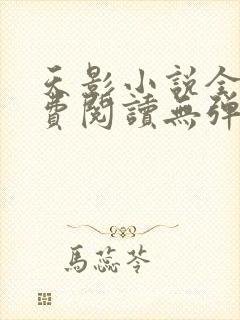 天影小説全
費閱讀無彈
馬蕊苓